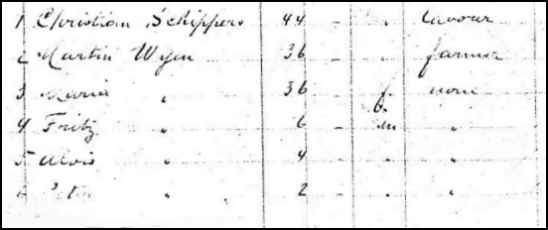 1 Christian Schippers 44 - " labour
2 Martin Wyen 36 - " farmer
3 Maria " 36 - f. none
4 Fritz " 6 - m "
5 Alois " 4 - " "
6 " 2 - " "